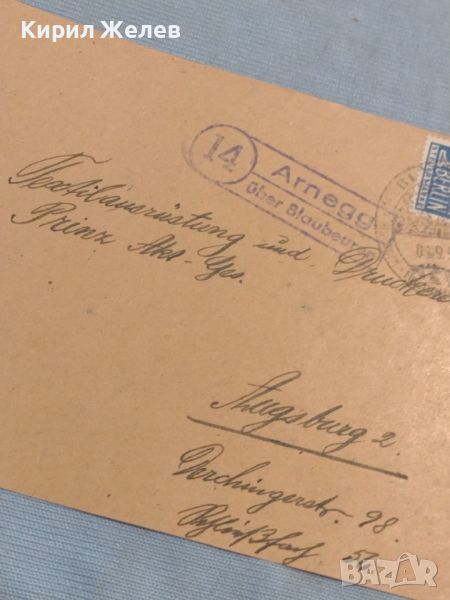 Кирил Желев
14
Arnegg
über Blaubeur
BERLIN
Textilausrüstung und Druckere
Prinz Akt. Ges.
Augsburg 2.
Derchingerstr. 98.
Schließfach
bazar